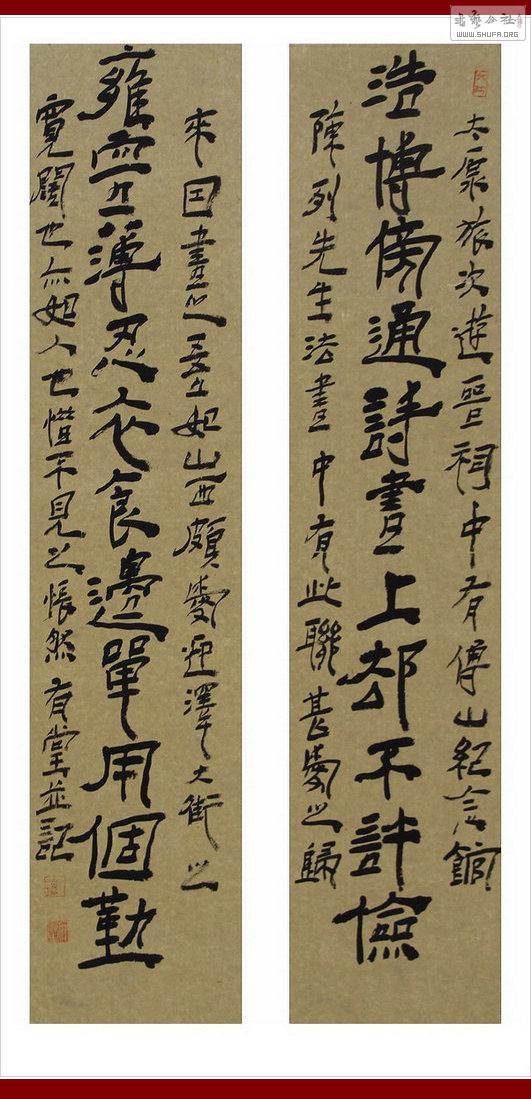 書藝公社
WWW.SHUFA.ORG
太原旅次遊晋祠中有傅山紀念館
浩博傍通詩書上却不許儉
陳列先生法書中有此聯甚愛之歸
來因書之山西頗愛迎澤大街之
薄忍衣食邊單用個勤
寬闊也亦如人也惜不見之悵然有堂並記